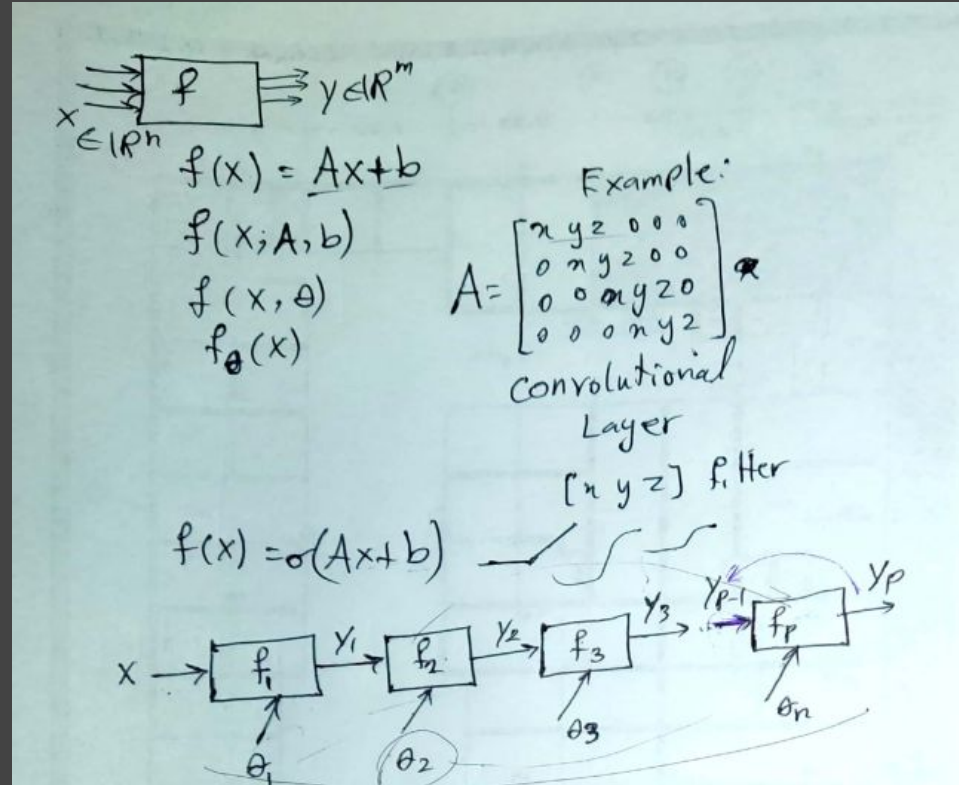 f
y ∈ ℝᵐ
x ∈ ℝⁿ
f(x) = Ax+b
f(x; A, b)
f(x, θ)
f_θ(x)
Example:
A = [
x y z 0 0 0
0 x y z 0 0
0 0 x y z 0
0 0 0 x y z
]
Convolutional
Layer
[x y z] filter
f(x) = σ(Ax+b)
x f₁ y₁ f₂ y₂ f₃ y₃ yₚ₋₁ fₚ yₚ
θ₁ θ₂ θ₃ θₙ